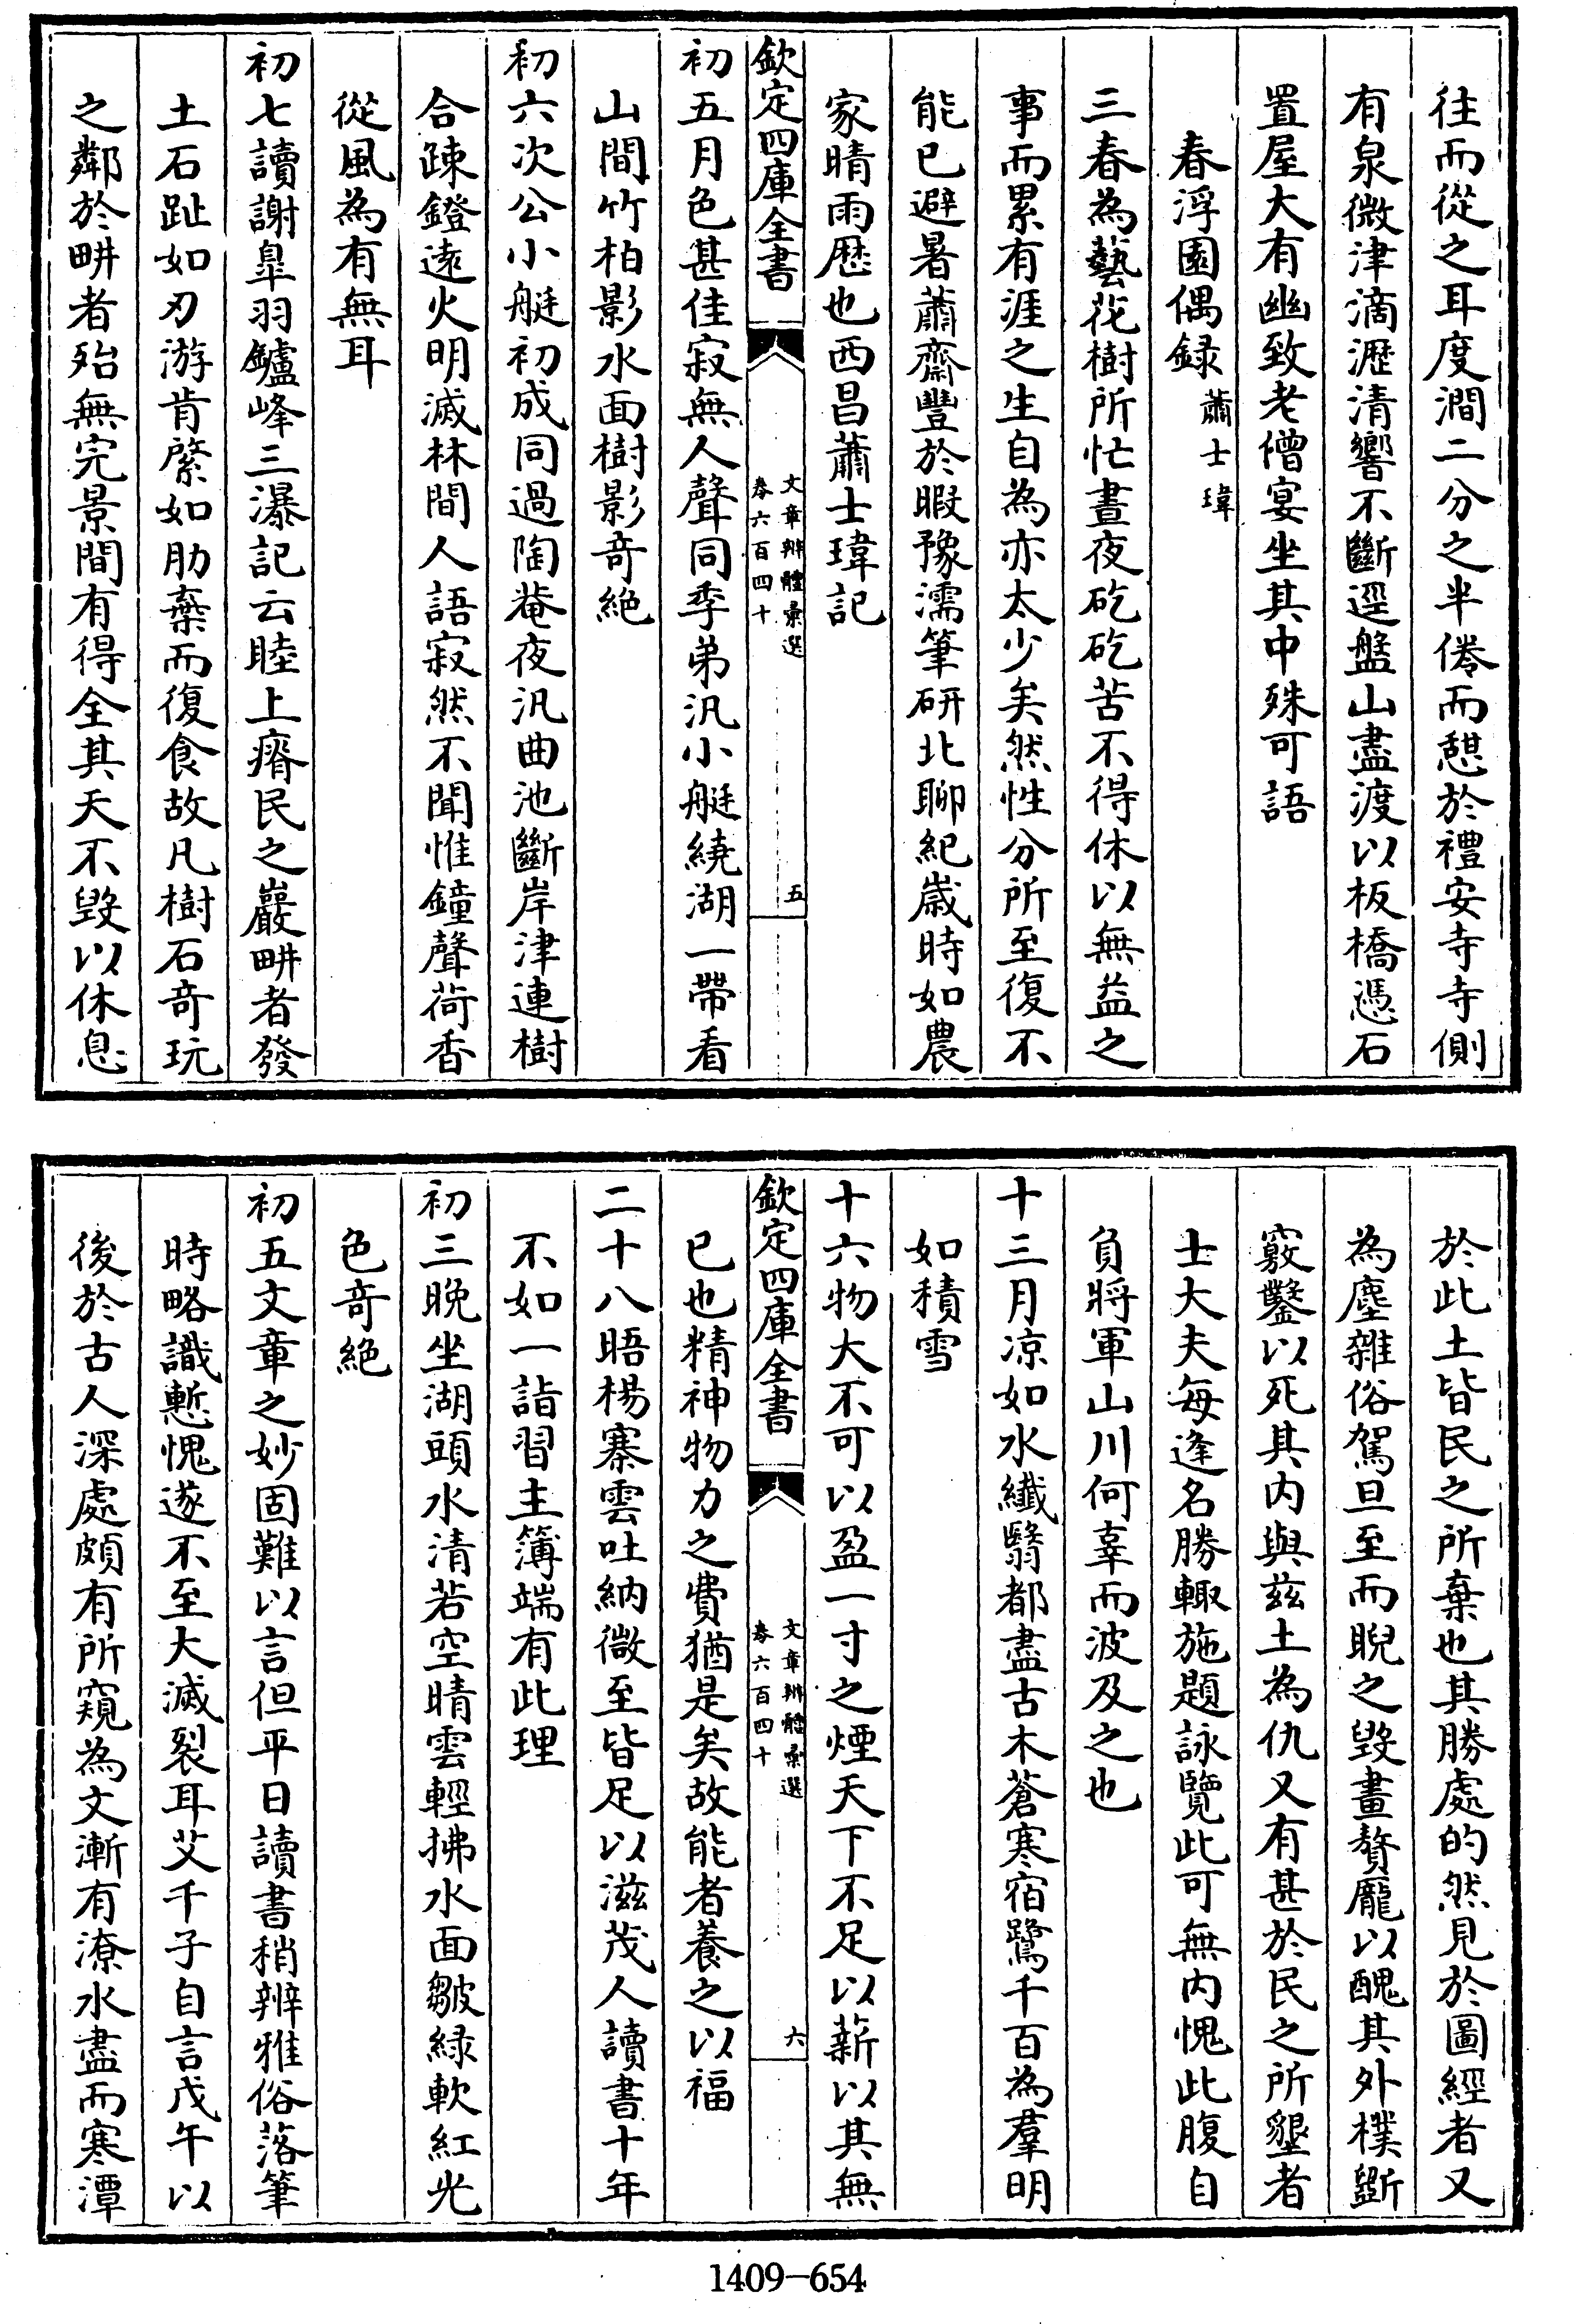 往而從之耳度澗二分之半倦而憩於禮安寺寺側
有泉微津滴瀝清響不斷逕盤山盡渡以板橋憑石
置屋大有幽致老僧宴坐其中殊可語
春浮園偶録 蕭士瑋
三春為藝花樹所忙晝夜矻矻苦不得休以無益之
事而累有涯之生自為亦太少矣然性分所至復不
能已避暑蕭齋豐於暇豫濡筆研北聊紀歲時如農
家晴雨歷也西昌蕭士瑋記
欽定四庫全書
文章辨體彙選
卷六百四十
五
初五月色甚佳寂無人聲同季弟汎小艇繞湖一帶看
山間竹柏影水面樹影奇絶
初六次公小艇初成同過陶菴夜汎曲池斷岸津連樹
合踈鐙遠火明滅林間人語寂然不聞惟鐘聲荷香
從風為有無耳
初七讀謝臯羽鑪峰三瀑記云睦上瘠民之巖畊者發
土石趾如刃游肯綮如肋棄而復食故凡樹石奇玩
之鄰於畊者殆無完景間有得全其天不毁以休息
於此土皆民之所棄也其勝處的然見於圖經者又
為塵雜俗駕旦至而睨之毁畫贅龎以醜其外樸斵
竅鑿以死其内與兹土為仇又有甚於民之所墾者
士大夫每逢名勝輙施題詠覽此可無内愧此腹自
負將軍山川何辜而波及之也
十三月凉如水纖翳都盡古木蒼寒宿鷺千百為羣明
如積雪
十六物大不可以盈一寸之煙天下不足以薪以其無
欽定四庫全書
文章辨體彙選
卷六百四十
六
已也精神物力之費猶是矣故能者養之以福
二十八晤楊寨雲吐納微至皆足以滋茂人讀書十年
不如一詣習主簿端有此理
初三晚坐湖頭水清若空晴雲輕拂水面皺緑軟紅光
色奇絶
初五文章之妙固難以言但平日讀書稍辨雅俗落筆
時略識慙愧遂不至大滅裂耳艾千子自言戊午以
後於古人深處頗有所窺為文漸有潦水盡而寒潭
1409—654